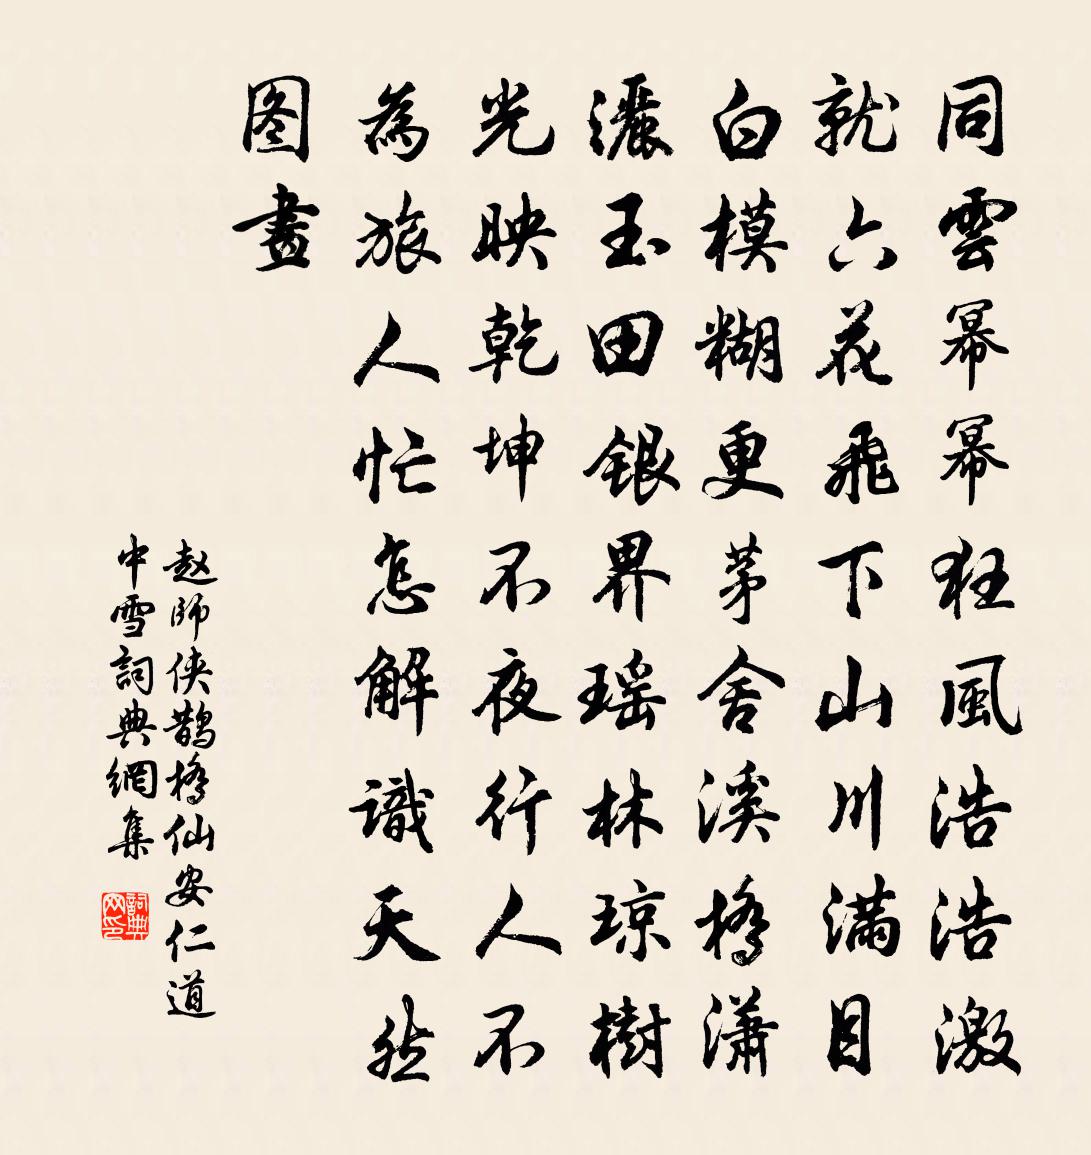 同雲幂幂狂風浩浩激
就六花飛下山川滿目
白模糊更茅舍溪橋瀟
灑玉田銀界瑶林琼樹
光映乾坤不夜行人不
為旅人忙怎解識天然
图畫
赵師侠鹊橋仙安仁道
中雪詞典網集
詞典网印